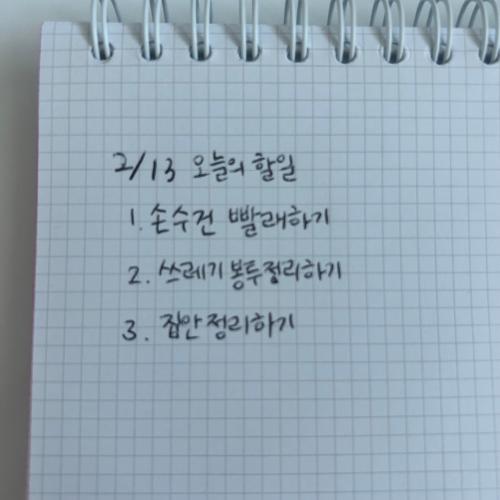 2/13 오늘의 할일
1. 손수건 빨래하기
2. 쓰레기 봉투정리하기
3. 집안정리하기